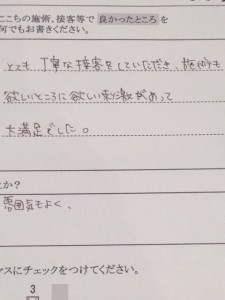 ここちの施術、接客等で 良かったところ を
何でもお書きください。
とても丁寧な接客をしていただき、施術も
欲しいところに欲しい刺激があって
大満足でした。
とか?
雰囲気もよく、
スにチェックをつけてください。
3